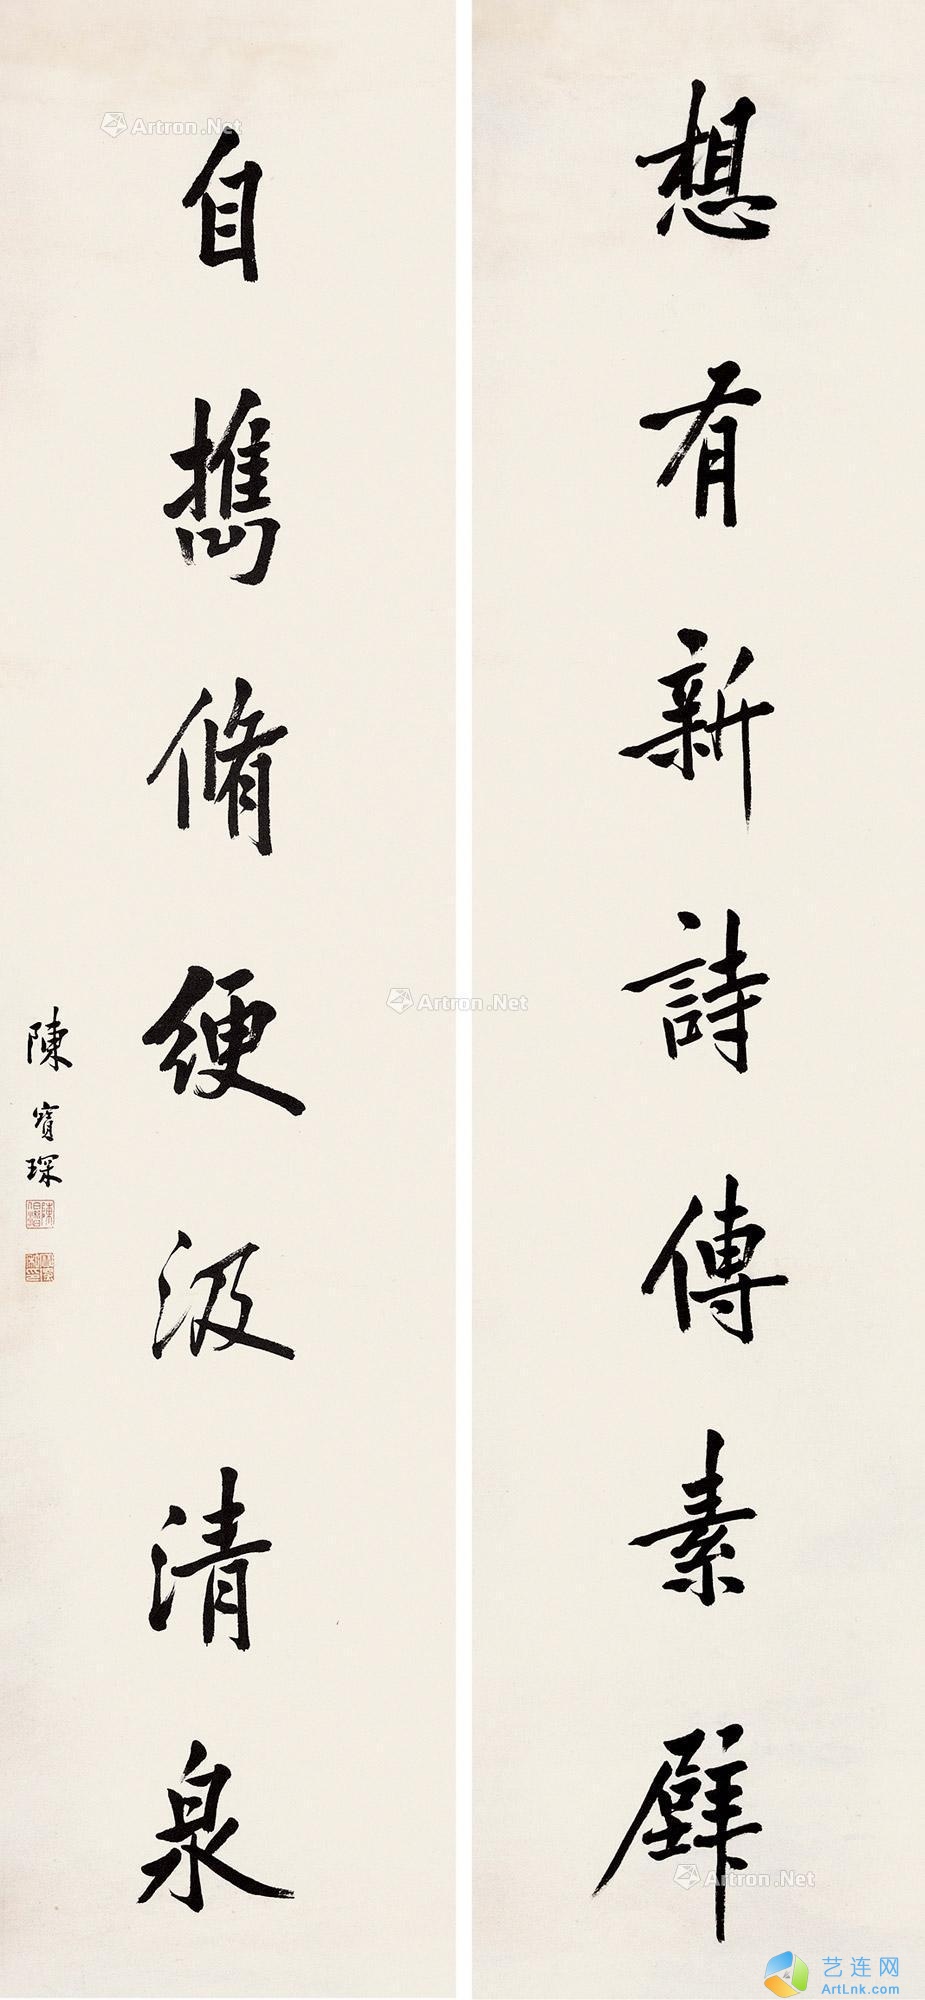 想有新詩傳素壁
自攜脩綆汲清泉
陳寶琛
Artron.Net
Artron.Net
Artron.Net
艺连网
ArtLnk.com